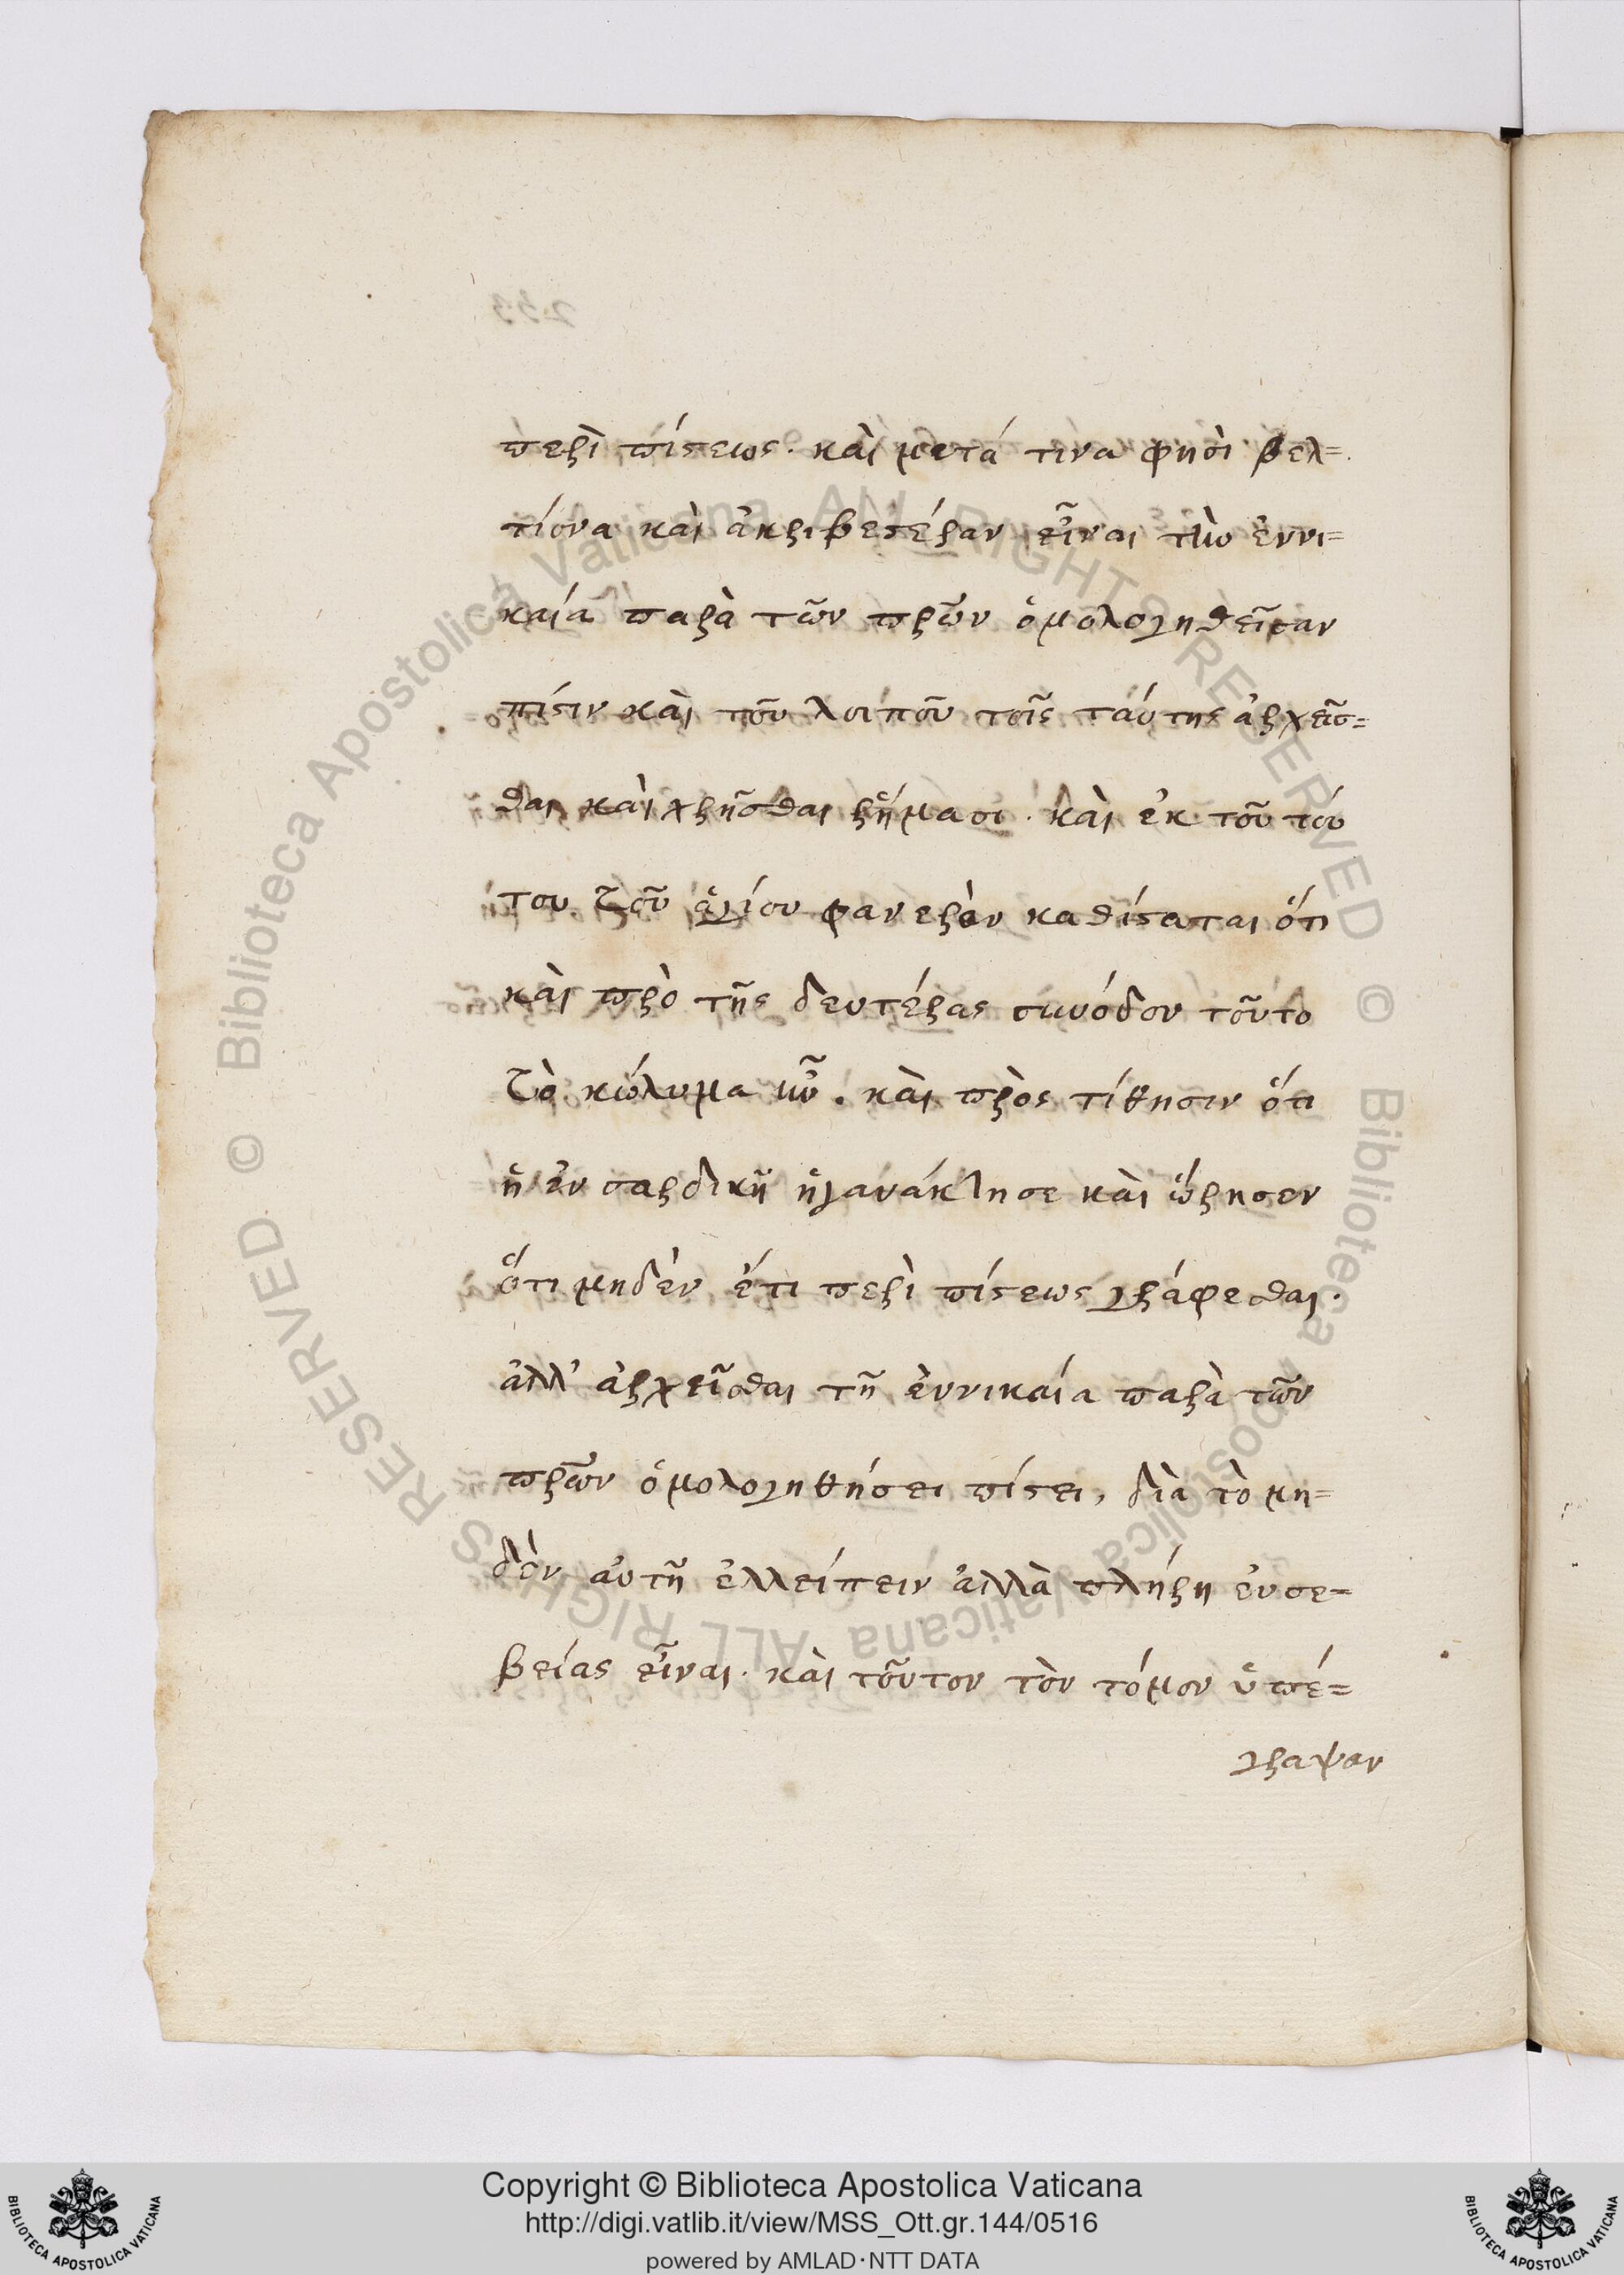 περὶ πίστεως· καὶ μετά τινα φησὶ βελ=
τίονα καὶ ἀκριβεστέραν εἶναι τὴν ἐννι=
καία παρὰ τῶν πρῶν ὁμολογηθεῖσαν
πίστιν καὶ τοῦ λοιποῦ τοῖς ταύτης ἀρχεῖσ=
θαι καὶ χρῆσθαι ῥήμασι. καὶ ἐκ τοῦ τού
του τοῦ ἁγίου φανερὸν καθίσταται ὅτι
καὶ πρὸ τῆς δευτέρας συνόδου τοῦτο
τὸ κώλυμα ἦν. καὶ πρὸς τίθησιν ὅτι
ἡ ἐν σαρδικῇ ἠγανάκτησε καὶ ὥρησεν
ὅτι μηδὲν ἔτι περὶ πίστεως γράφεσθαι.
ἀλλ' ἀρχεῖσθαι τῇ ἐννικαία παρὰ τῶν
πρῶν ὁμολογηθήσει πίστει, διὰ τὸ μη=
δὲν αὐτῇ ἐλλείπειν ἀλλὰ πλήρη εὐσε=
βείας εἶναι. καὶ τοῦτον τὸν τόμον ὑπέ=
γραψαν
Copyright © Biblioteca Apostolica Vaticana
http://digi.vatlib.it/view/MSS_Ott.gr.144/0516
powered by AMLAD·NTT DATA